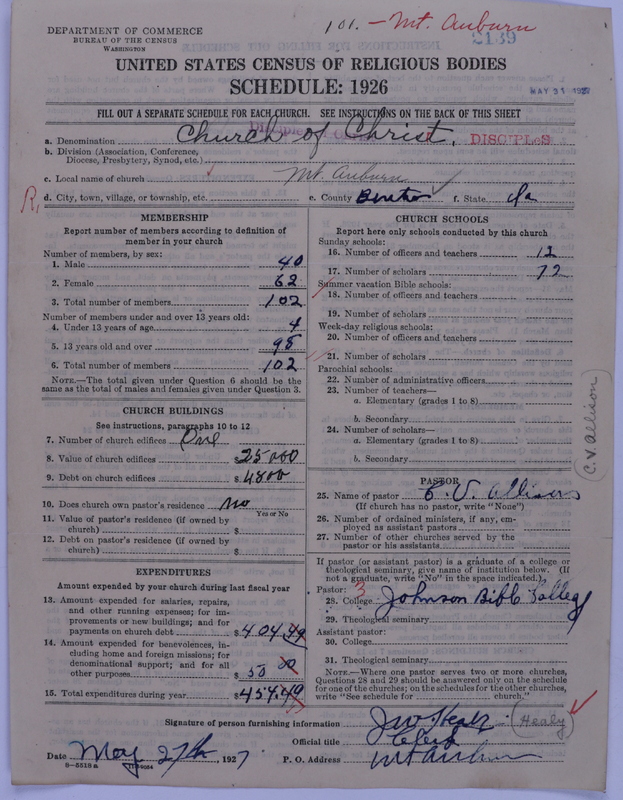 DEPARTMENT OF COMMERCE
BUREAU OF THE CENSUS
WASHINGTON
101. - Mt. Auburn
2139
UNITED STATES CENSUS OF RELIGIOUS BODIES
SCHEDULE: 1926
MAY 31 1927
FILL OUT A SEPARATE SCHEDULE FOR EACH CHURCH. SEE INSTRUCTIONS ON THE BACK OF THIS SHEET
a. Denomination Church of Christ. DISCIPLES
b. Division (Association, Conference,
Diocese, Presbytery, Synod, etc.)
c. Local name of church Mt. Auburn
R. d. City, town, village, or township, etc. e. County Benton f. State Ia
MEMBERSHIP
Report number of members according to definition of
member in your church
Number of members, by sex:
1. Male 40
2. Female 62
3. Total number of members 102
Number of members under and over 13 years old:
4. Under 13 years of age 4
5. 13 years old and over 98
6. Total number of members 102
NOTE.—The total given under Question 6 should be
the same as the total of males and females given under Question 3.
CHURCH BUILDINGS
See instructions, paragraphs 10 to 12
7. Number of church edifices One
8. Value of church edifices $ 25000
9. Debt on church edifices $ 4800
10. Does church own pastor's residence? No
Yes or No
11. Value of pastor's residence (if owned by
church) $
12. Debt on pastor's residence (if owned by
church) $
EXPENDITURES
Amount expended by your church during last fiscal year
13. Amount expended for salaries, repairs,
and other running expenses; for im-
provements or new buildings; and for
payments on church debt $ 404.49
14. Amount expended for benevolences, in-
cluding home and foreign missions; for
denominational support; and for all
other purposes $ 50 00
15. Total expenditures during year $ 454.49
CHURCH SCHOOLS
Report here only schools conducted by this church
Sunday schools:
16. Number of officers and teachers 12
17. Number of scholars 72
Summer vacation Bible schools:
18. Number of officers and teachers
19. Number of scholars
Week-day religious schools:
20. Number of officers and teachers
21. Number of scholars
Parochial schools:
22. Number of administrative officers
23. Number of teachers—
a. Elementary (grades 1 to 8)
b. Secondary
24. Number of scholars—
a. Elementary (grades 1 to 8)
b. Secondary
C. V. Allison
PASTOR
25. Name of pastor C. V. Allison
(If church has no pastor, write "None")
26. Number of ordained ministers, if any, em-
ployed as assistant pastors
27. Number of other churches served by the
pastor or his assistants
If pastor (or assistant pastor) is a graduate of a college or
theological seminary, give name of institution below. (If
not a graduate, write "No" in the space indicated.)
Pastor: 3
28. College Johnson Bible College
29. Theological seminary
Assistant pastor:
30. College
31. Theological seminary
NOTE.—Where one pastor serves two or more churches,
Questions 28 and 29 should be answered only on the schedule
for one of the churches; on the schedules for the other churches,
write "See schedule for church."
Signature of person furnishing information J W Healy (Healy)
Official title Clerk
Date May 27th, 1927 P. O. Address Mt Auburn
8-5518 a